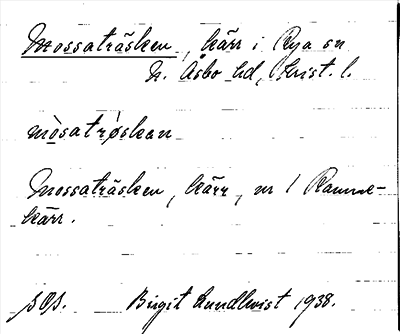 Mossaträsken, kärr i Rya sn
N. Åsbo hd, Krist. l.
mòsatrǿskan
Mossaträsken, kärr, nr 1 Ramne-
kärr.
Birgit Lundkvist 1938.